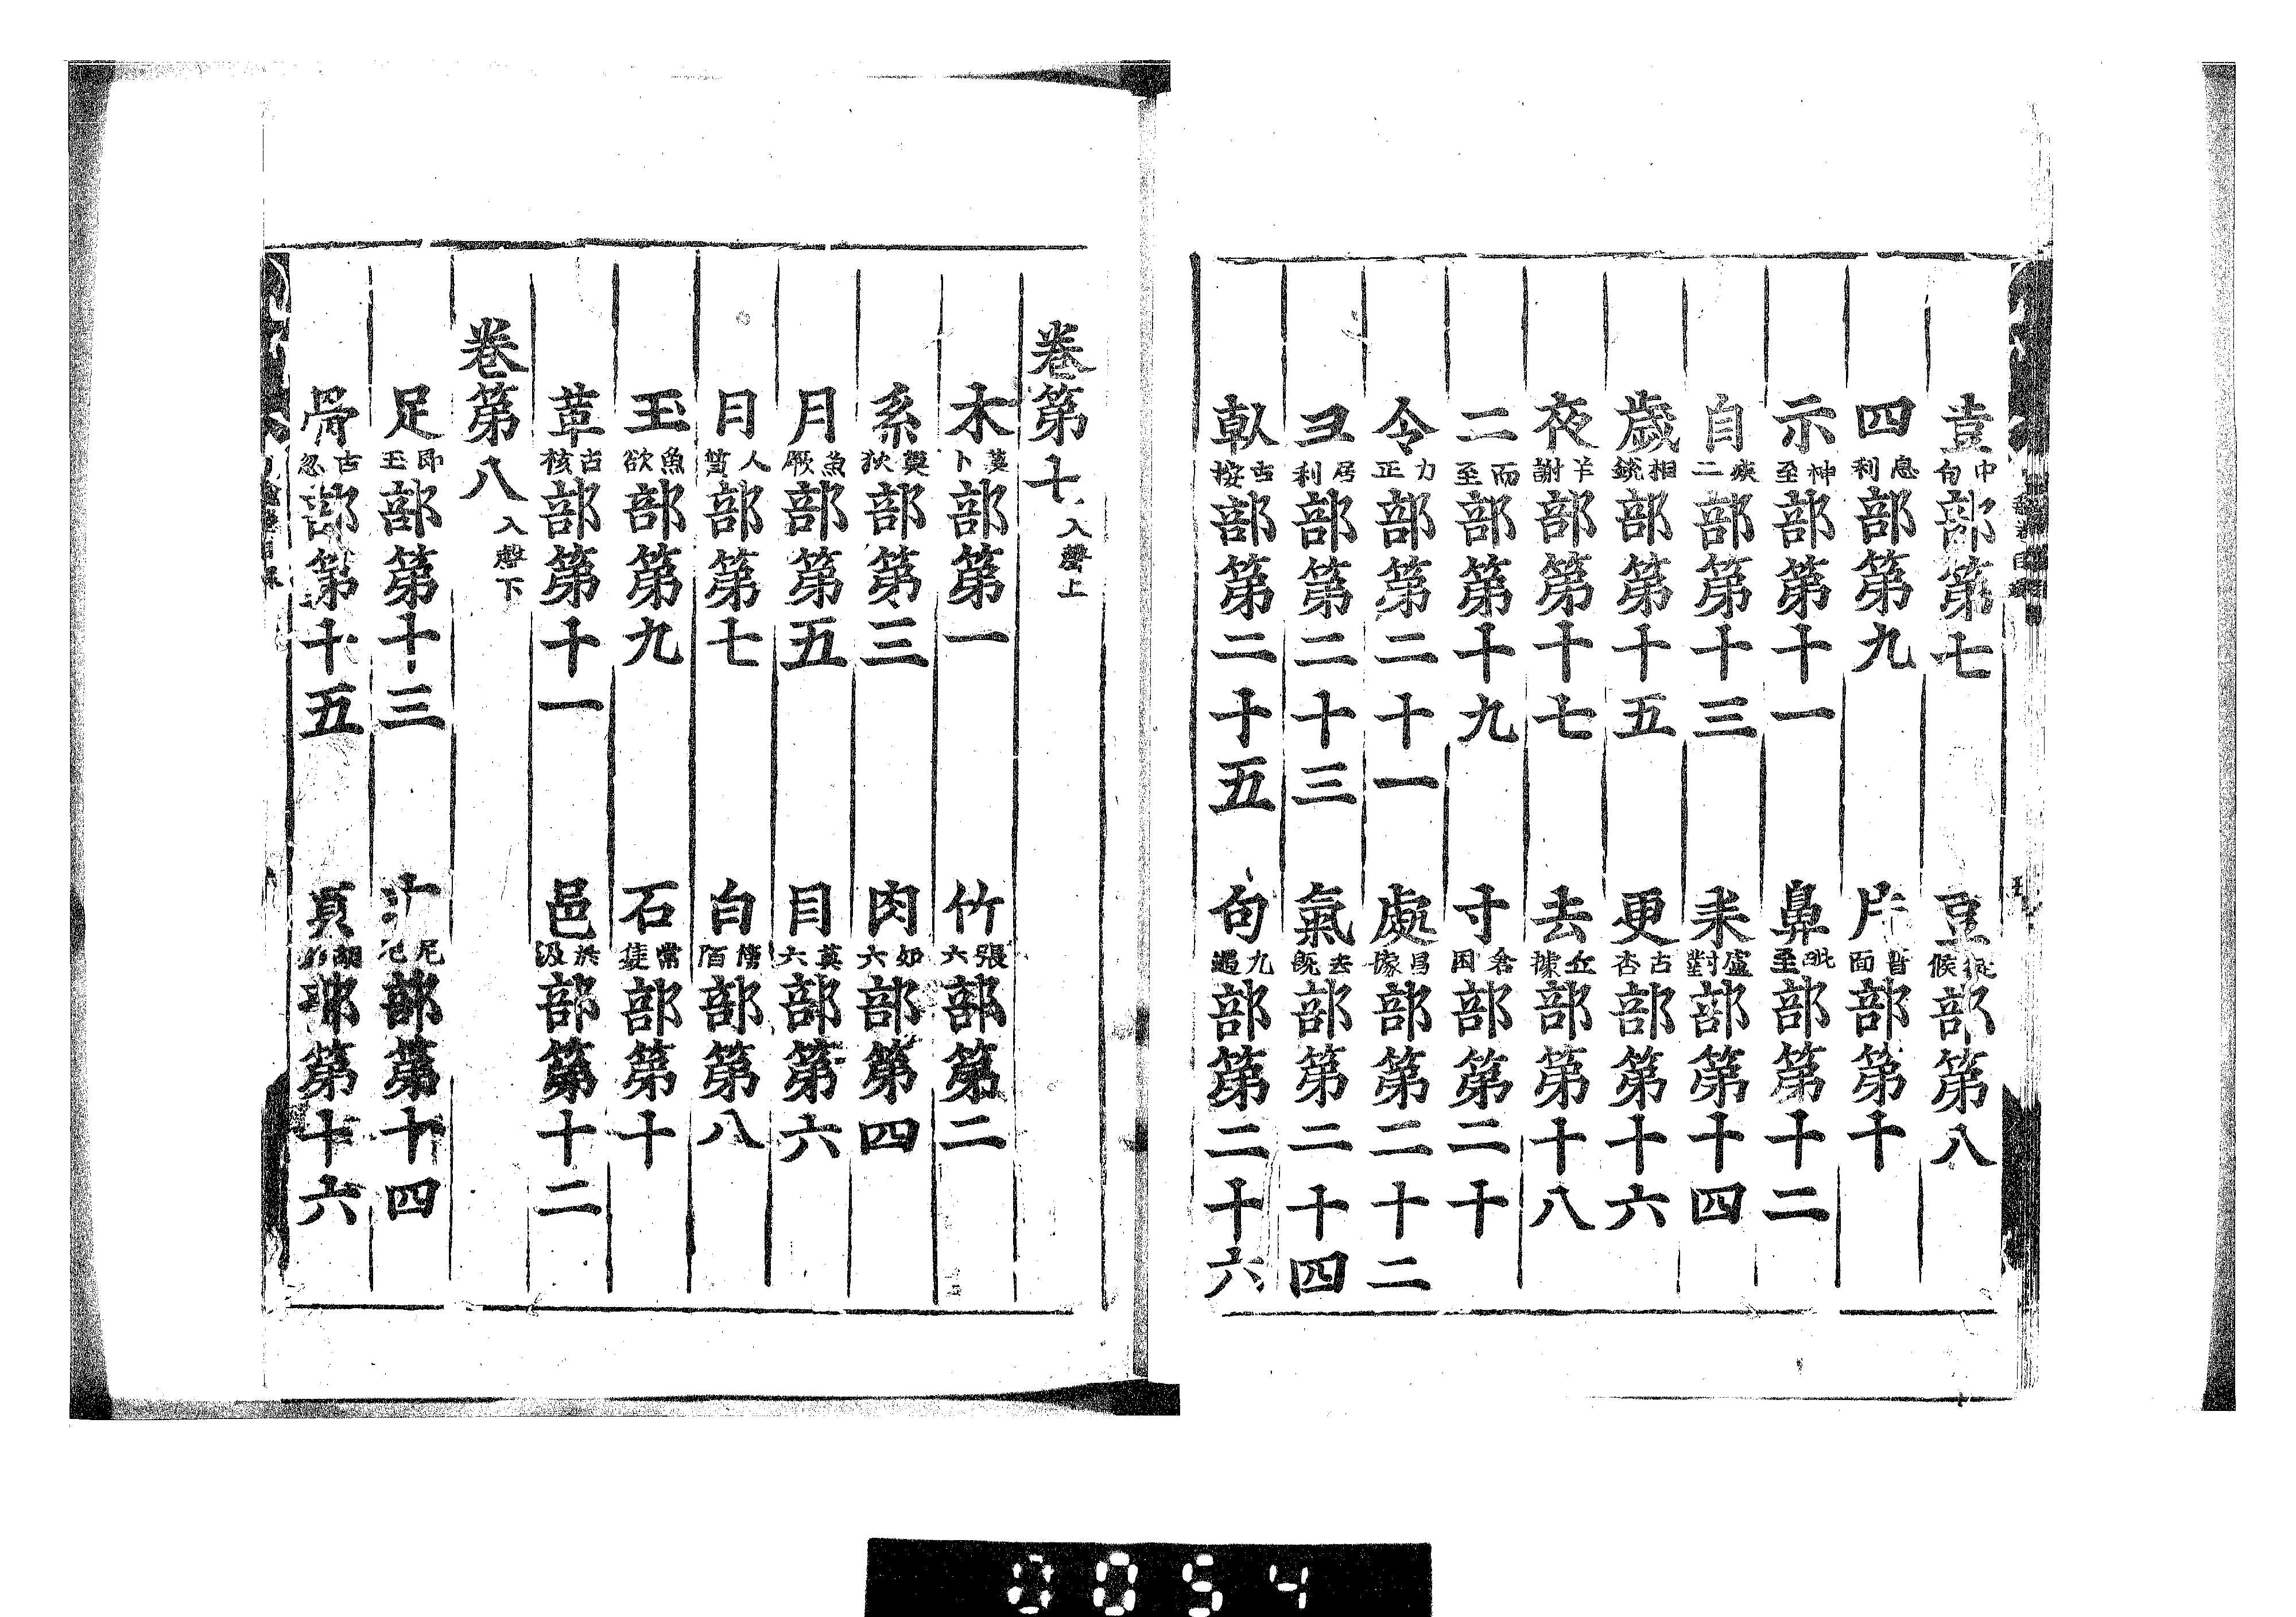 壴中句部第七　豆徒候部第八
四息利部第九　片普面部第十
示神至部第十一　鼻毗至部第十二
自疾二部第十三　耒盧對部第十四
歲相銳部第十五　更古杏部第十六
夜羊謝部第十七　去丘據部第十八
二而至部第十九　寸倉困部第二十
令力正部第二十一　處昌據部第二十二
彑居利部第二十三　氣去旣部第二十四
倝古按部第二十五　句九遇部第二十六
卷第七入聲上
木莫卜部第一　竹張六部第二
糸奚狄部第三　肉如六部第四
月魚厥部第五　目莫六部第六
日人質部第七　白傍陌部第八
玉魚欲部第九　石常隻部第十
革古核部第十一　邑於汲部第十二
卷第八入聲下
足即玉部第十三　疒尼戹部第十四
骨古忽部第十五　頁胡部第十六
0054